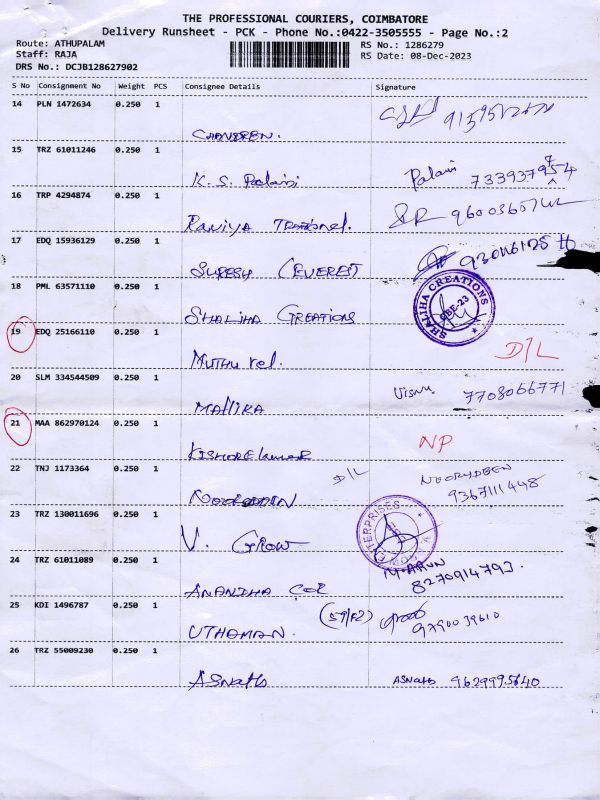 THE PROFESSIONAL COURIERS, COIMBATORE
Delivery Runsheet - PCK - Phone No.:0422-3505555 - Page No.:2
Route: ATHUPALAM
Staff: RAJA
DRS No.: DCJB128627902
RS No.: 1286279
RS Date: 08-Dec-2023
S No Consignment No Weight PCS Consignee Details Signature
14 PLN 1472634 0.250 1
15 TRZ 61011246 0.250 1
K. S. Palani Palani
16 TRP 4294874 0.250 1
17 EDQ 15936129 0.250 1
SURESH (EVEREST
18 PML 63571110 0.250 1
SHALIHA CREATIONS
SHALIHA CREATIONS
CBE-23
19 EDQ 25166110 0.250 1
MUTHU vel. D/L
20 SLM 334544509 0.250 1
MAllIKA 7708066771
21 MAA 862970124 0.250 1
KISHORE kumar NP
22 TNJ 1173364 0.250 1
D/L NOORUDEEN
9367111448
23 TRZ 130011696 0.250 1
V. GROW
ENTERPRISES
24 TRZ 61011089 0.250 1
M. ARUN
8270914793.
25 KDI 1496787 0.250 1
UTHAMAN.
9790039610
26 TRZ 55009230 0.250 1
ASNATH ASNATH 9629995640